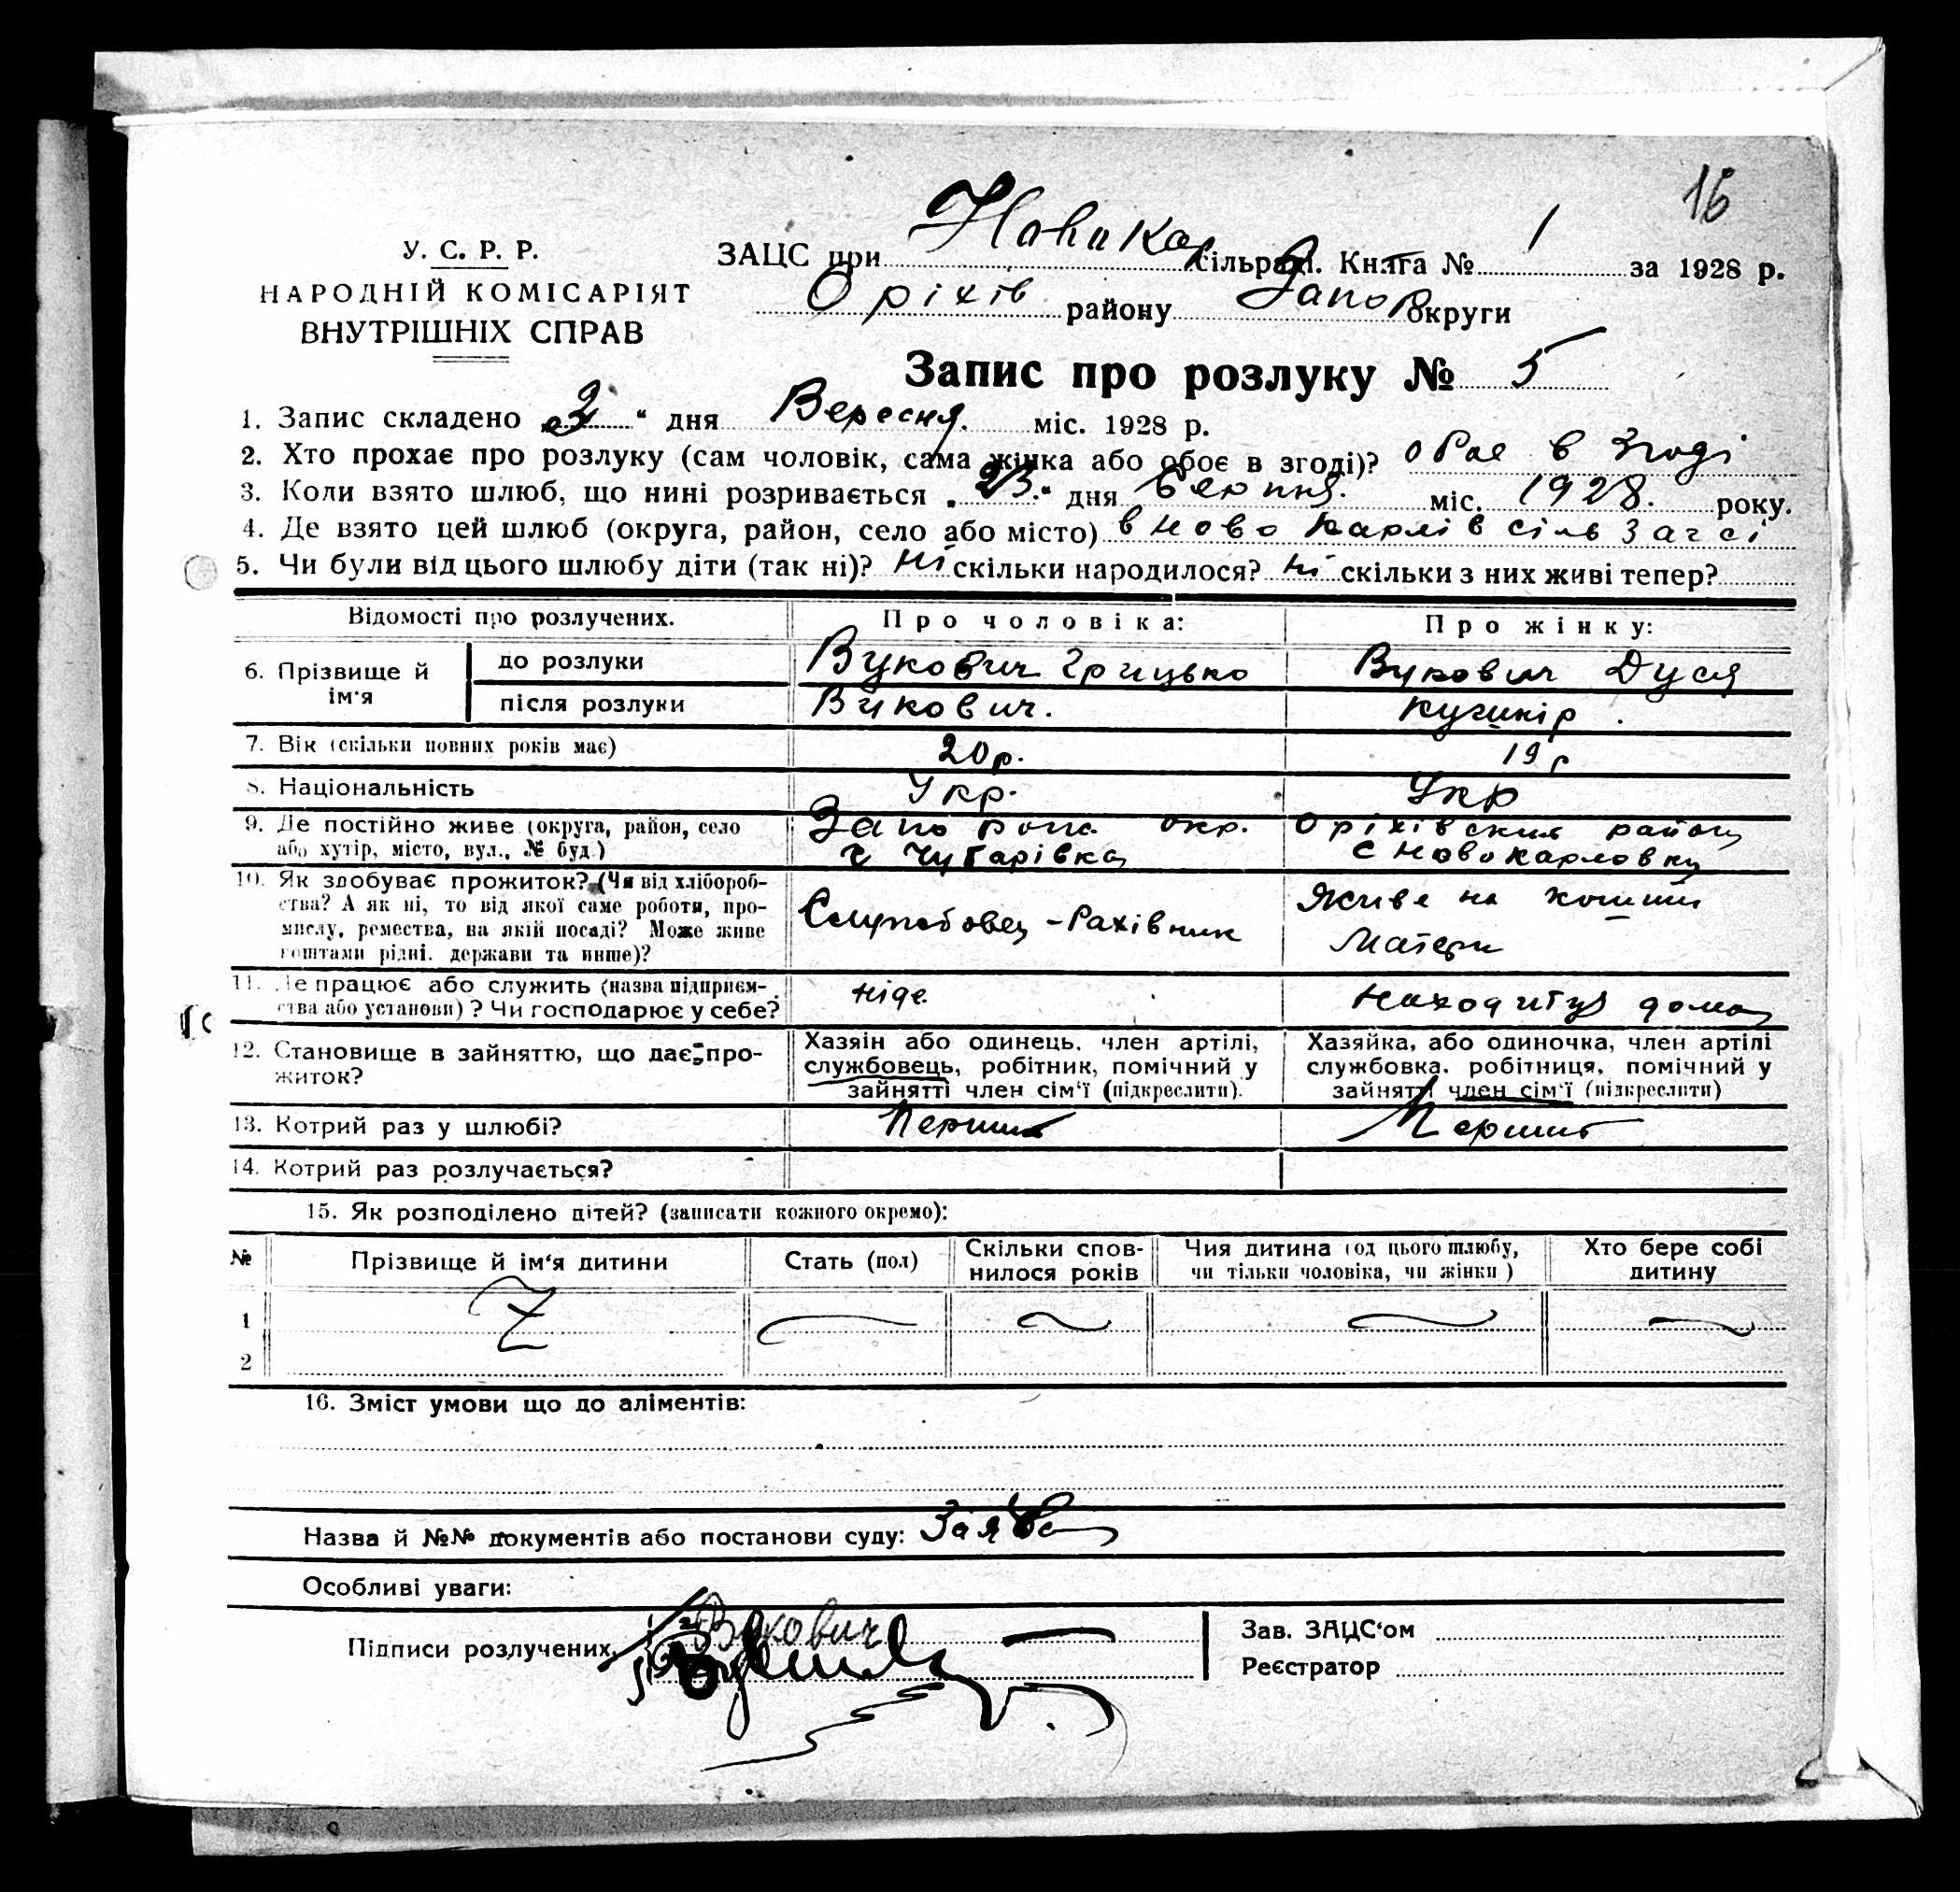 16
У. С. Р. Р.
НАРОДНІЙ КОМІСАРІЯТ
ВНУТРІШНІХ СПРАВ
ЗАЦС при Новокар сільраді. Книга № 1 за 1928 р.
Оріхів району Запор округи
Запис про розлуку № 5
1. Запис складено „2“ дня Вересня. міс. 1928 р.
2. Хто прохає про розлуку (сам чоловік, сама жінка або обоє в згоді)? обоє в згоді
3. Коли взято шлюб, що нині розривається „23“ дня Серпня. міс. 1928. року.
4. Де взято цей шлюб (округа, район, село або місто) в Ново Карлів сіль Загсі
5. Чи були від цього шлюбу діти (так ні)? Ні скільки народилося? Ні скільки з них живі тепер?
Відомості про розлучених. Про чоловіка: Про жінку:
6. Прізвище й ім‘я до розлуки Вукович Грицько Вукович Дуся
після розлуки Вукович. Кушнір.
7. Вік (скільки повних років має) 20 р. 19 р
8. Національність Укр. Укр
9. Де постійно живе (округа, район, село Запо окр. Оріхівский район
або хутір, місто, вул., № буд.) Чубарівка с Новокарловка
10. Як здобуває прожиток? (Чи від хлібороб-
ства? А як ні, то від якої саме роботи, про- Службовец - Рахівник Живе на кошти
мислу, ремества, на якій посаді? Може живе Матери
коштами рідні. держави та инше)?
11. Де працює або служить (назва підприєм- ніде
ства або установи)? Чи господарює у себе? дома
12. Становище в зайняттю, що дає про-
житок?
Хазяїн або одинець. член артілі,
службовець, робітник, помічний у
зайнятті член сім‘ї (підкреслити).
Хазяйка, або одиночка, член артілі
службовка. робітниця, помічний у
зайнятті член сім‘ї (підкреслити)
13. Котрий раз у шлюбі? Перший Перший
14. Котрий раз розлучається?
15. Як розподілено дітей? (записати кожного окремо):
№ Прізвище й ім‘я дитини Стать (пол) Скільки спов-нилося років Чия дитина (од цього шлюбу, чи тільки чоловіка, чи жінки) Хто бере собі дитину
1
2
16. Зміст умови що до аліментів:
Назва й №№ документів або постанови суду: Заява
Особливі уваги:
Підписи розлучених. Вукович
Зав. ЗАЦС‘ом
Реєстратор